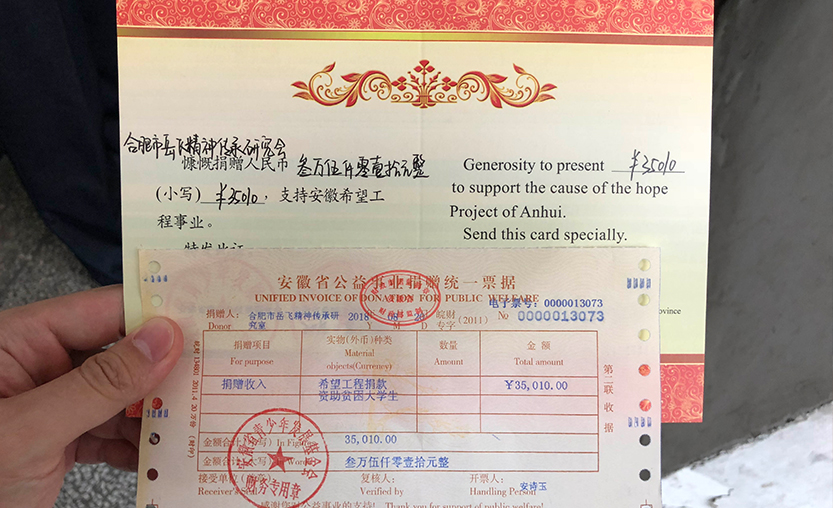 合肥市岳飞精神传承研究会
慷慨捐赠人民币 叁万伍仟零壹拾元整
(小写) ¥35010 ,支持安徽希望工
程事业。
特发此证
Generosity to present ¥35010
to support the cause of the hope
Project of Anhui.
Send this card specially.
ovince
安徽省公益事业捐赠统一票据
UNIFIED INVOICE OF DONATION FOR PUBLIC WELFARE
电子票号: 0000013073
捐赠人: 合肥市岳飞精神传承研究室 2018 皖财 (2011) № 0000013073
Donor Y M D 专字
捐赠项目 实物(外币)种类 数量 金额
For purpose Material objects(Currency) Amount Total amount
捐赠收入 希望工程捐款 ¥35,010.00
资助贫困大学生
金额合计(小写) In Figures 35,010.00
金额合计(大写) Words 叁万伍仟零壹拾元整
接受单位 复核人: 开票人: 安诗玉
Receiver's Verified by Handling Person
感谢您对公益事业的支持! Thank you for support of public welfare!
第二联 收据
安徽省青少年发展基金会
财务专用章